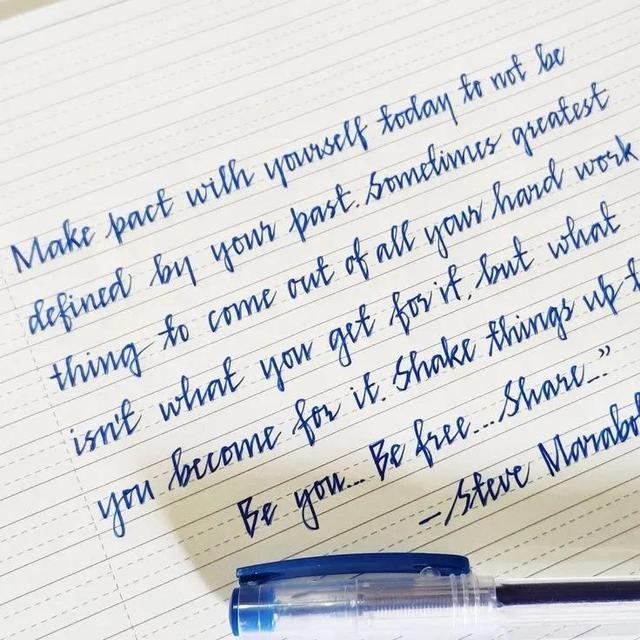 Make pact with yourself today to not be
defined by your past. Sometimes greatest
thing to come out of all your hard work
isn't what you get for it, but what
you become for it. Shake things up
Be you... Be free... Share..."
-Steve